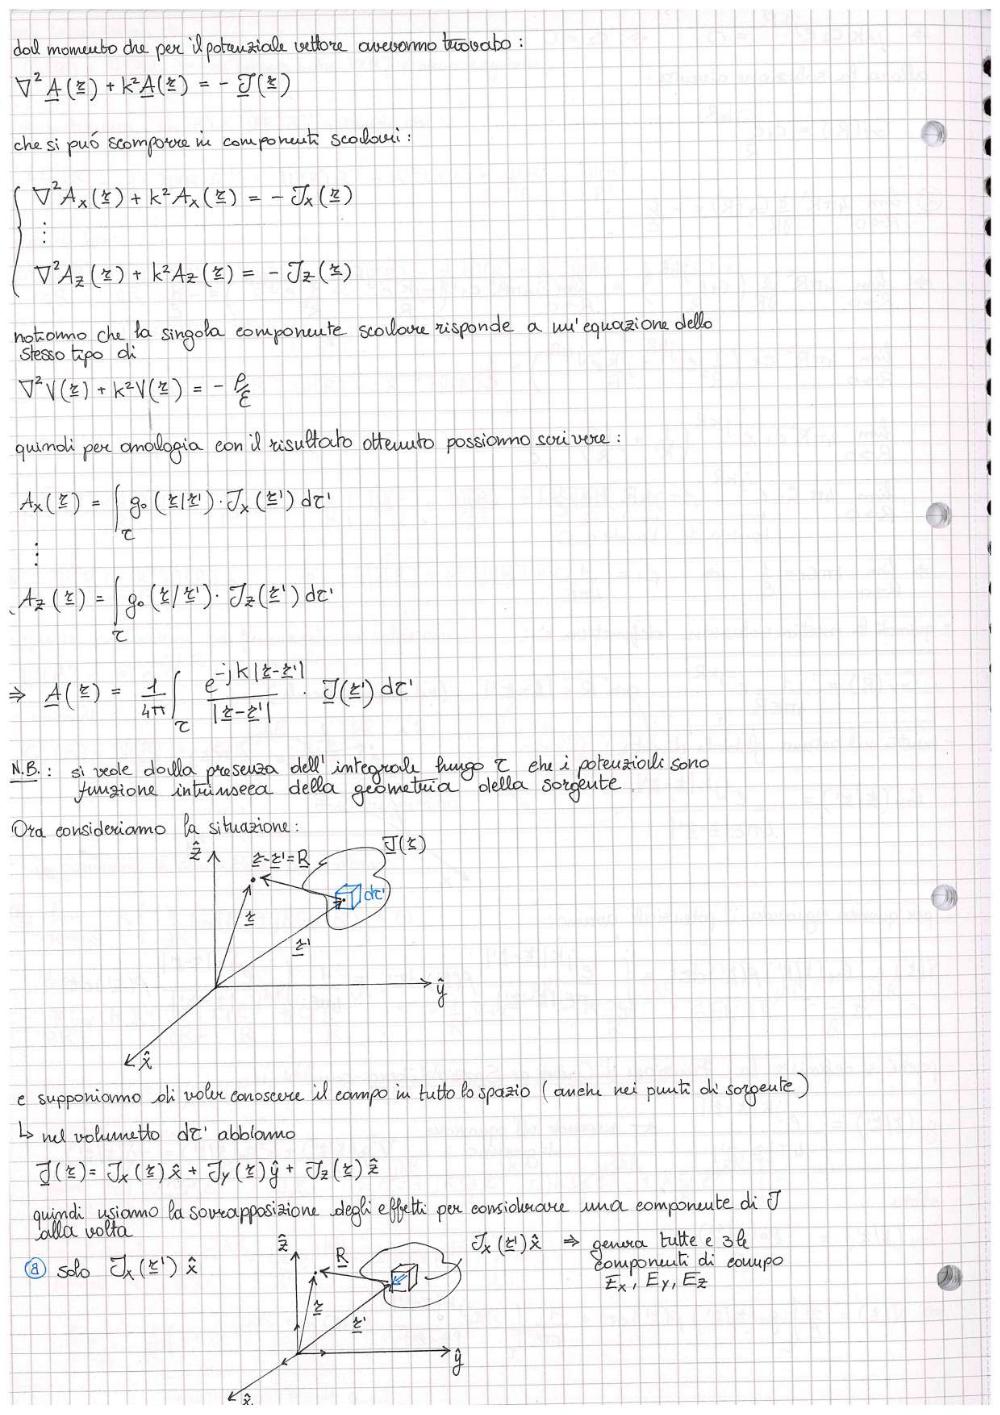 dal momento che per il potenziale vettore avevamo trovato:
∇² A(r) + k² A(r) = - J(r)
che si può scomporre in componenti scalari:
∇²Ax(r) + k² Ax(r) = - Jx(r)
⋮
∇²Az(r) + k² Az(r) = - Jz(r)
notiamo che la singola componente scalare risponde a un'equazione dello
stesso tipo di
∇²V(r) + k²V(r) = - ρ/ε
quindi per analogia con il risultato ottenuto possiamo scrivere:
Ax(r) = ∫τ g₀(r|r')·Jx(r') dτ'
⋮
Az(r) = ∫τ g₀(r/r')·Jz(r') dτ'
⇒ A(r) = 1/4π ∫τ e^-jk|r-r'| / |r-r'| · J(r') dτ'
N.B.: si vede dalla presenza dell'integrale lungo τ che i potenziali sono
funzione intrinseca della geometria della sorgente
Ora consideriamo la situazione:
ẑ r-r'=R J(r)
dτ'
r
r'
ŷ
x̂
e supponiamo di voler conoscere il campo in tutto lo spazio (anche nei punti di sorgente)
↳ nel volumetto dτ' abbiamo
J(r) = Jx(r) x̂ + Jy(r) ŷ + Jz(r) ẑ
quindi usiamo la sovrapposizione degli effetti per considerare una componente di J
alla volta
ⓐ solo Jx(r') x̂
ẑ R Jx(r') x̂ ⇒ genera tutte e 3 le
componenti di campo
Ex, Ey, Ez
r
r'
ŷ
x̂